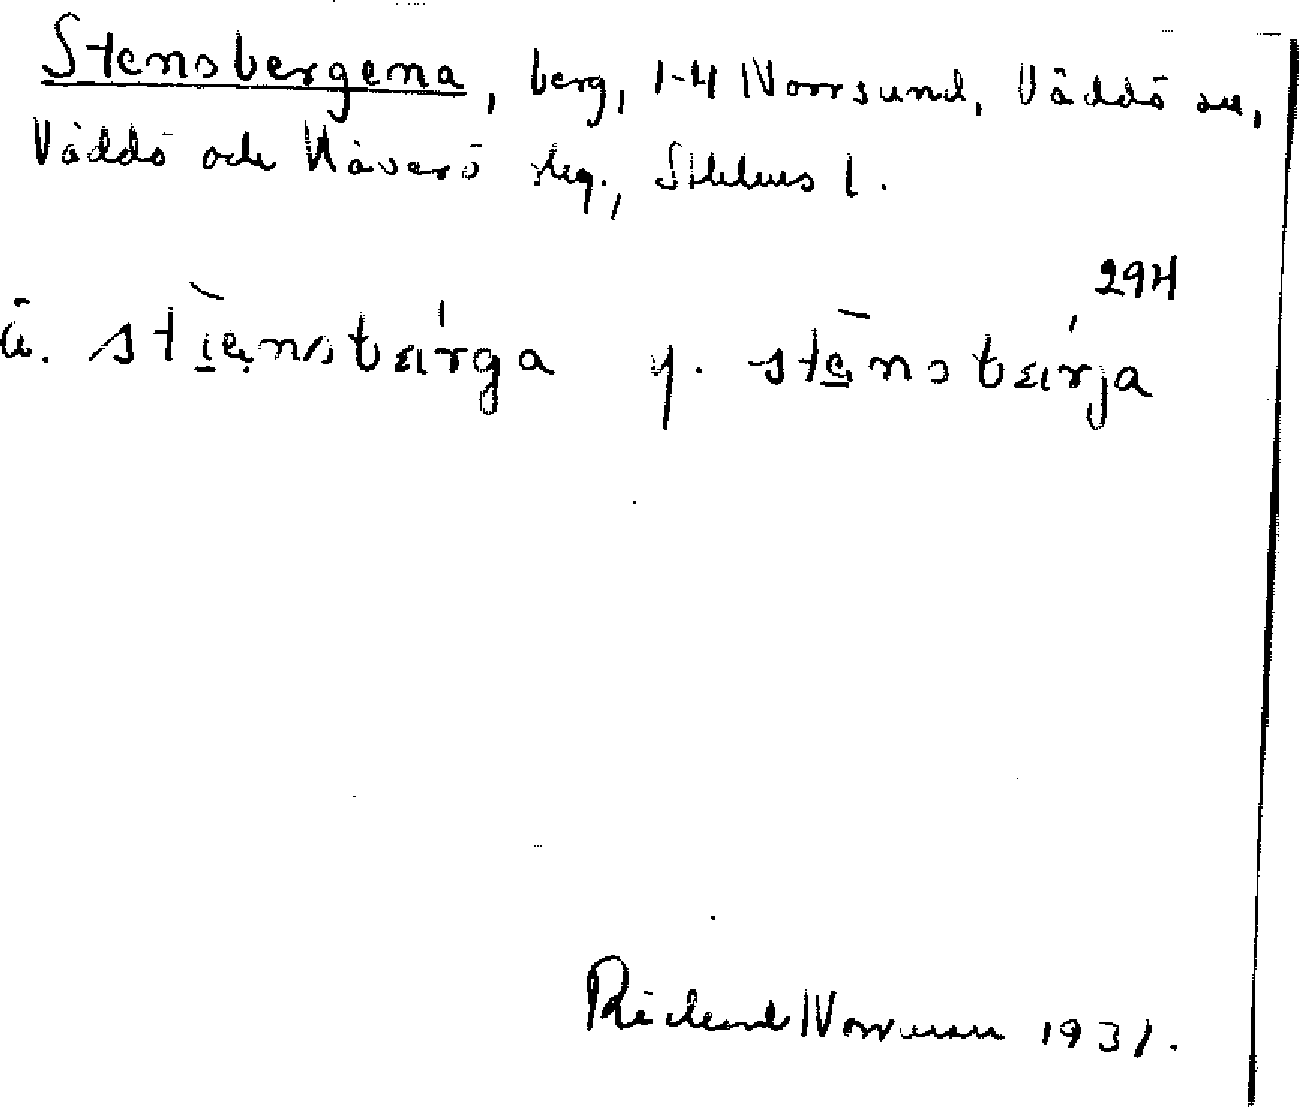 Stensbergena, berg, 1-4 Norrsund, Väddö sn,
Väddö och Häverö skg., Sthlms l.
294
ä. stiensbærga y. stensbærja
Richard Norrman 1931.